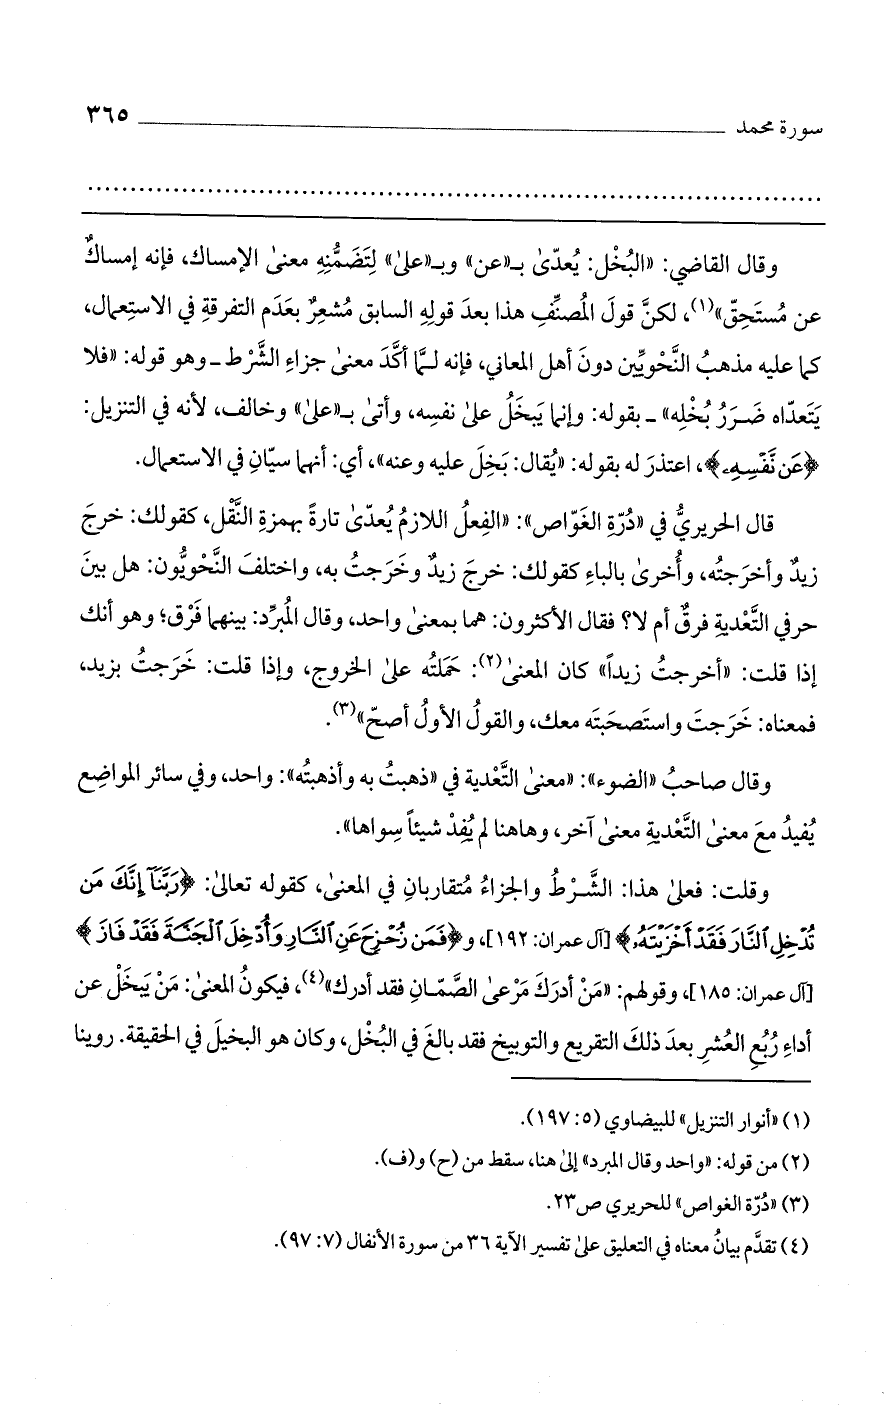 سورة محمد ٣٦٥
وقال القاضي: «البُخْل: يُعدّىٰ بـ«عن» وبـ«علىٰ» لِتَضَمُّنِهِ معنىٰ الإمساك، فإنه إمساكٌ
عن مُستَحِقّ»(١)، لكنَّ قولَ المُصنِّفِ هذا بعدَ قولِهِ السابق مُشعِرٌ بعَدَم التفرقةِ في الاستِعمال،
كما عليه مذهبُ النَّحْويِّين دونَ أهل المعاني، فإنه لـمَّا أكَّدَ معنىٰ جزاءِ الشَّرْط ـ وهو قوله: «فلا
يَتَعدّاه ضَرَرُ بُخْلِه» ـ بقوله: وإنما يَبخَلُ علىٰ نفسِه، وأتىٰ بـ«علىٰ» وخالف، لأنه في التنزيل:
﴿عَن نَّفْسِهِۦ﴾، اعتذرَ له بقوله: «يُقال: بَخِلَ عليه وعنه»، أي: أنهما سيّانِ في الاستعمال.
قال الحريريُّ في «دُرّةِ الغَوّاص»: «الفِعلُ اللازمُ يُعدّىٰ تارةً بهمزةِ النَّقْل، كقولك: خرجَ
زيدٌ وأخرَجتُه، وأُخرىٰ بالباءِ كقولك: خرجَ زيدٌ وخَرَجتُ به، واختلفَ النَّحْويُّون: هل بينَ
حرفي التَّعْديةِ فرقٌ أم لا؟ فقال الأكثرون: هما بمعنىٰ واحد، وقال المُبرِّد: بينهما فَرْق؛ وهو أنك
إذا قلت: «أخرجتُ زيداً» كان المعنىٰ(٢): حَمَلتُه علىٰ الخروج، وإذا قلت: خَرَجتُ بزيد،
فمعناه: خَرَجتَ واستَصحَبتَه معك، والقولُ الأولُ أصحّ»(٣).
وقال صاحبُ «الضوء»: «معنىٰ التَّعْدية في «ذهبتُ به وأذهبتُه»: واحد، وفي سائر المواضِع
يُفيدُ مَعَ معنىٰ التَّعْديةِ معنىٰ آخر، وهاهنا لم يُفِدْ شيئاً سِواها».
وقلت: فعلىٰ هذا: الشَّرْطُ والجزاءُ مُتقاربانِ في المعنىٰ، كقوله تعالىٰ: ﴿رَبَّنَآ إِنَّكَ مَن
تُدْخِلِ ٱلنَّارَ فَقَدْ أَخْزَيْتَهُۥ﴾ [آل عمران: ١٩٢]، و﴿فَمَن زُحْزِحَ عَنِ ٱلنَّارِ وَأُدْخِلَ ٱلْجَنَّةَ فَقَدْ فَازَ﴾
[آل عمران: ١٨٥]، وقولهم: «مَنْ أدرَكَ مَرْعىٰ الصَّمّانِ فقد أدرك»(٤)، فيكونُ المعنىٰ: مَنْ يَبخَلْ عن
أداءِ رُبُعِ العُشرِ بعدَ ذلكَ التقريع والتوبيخ فقد بالغَ في البُخْل، وكان هو البخيلَ في الحقيقة. روينا
(١) «أنوار التنزيل» للبيضاوي (٥: ١٩٧).
(٢) من قوله: «واحد وقال المبرد» إلىٰ هنا، سقط من (ح) و(ف).
(٣) «دُرّة الغواص» للحريري ص٢٣.
(٤) تقدَّم بيانُ معناه في التعليق علىٰ تفسير الآية ٣٦ من سورة الأنفال (٧: ٩٧).